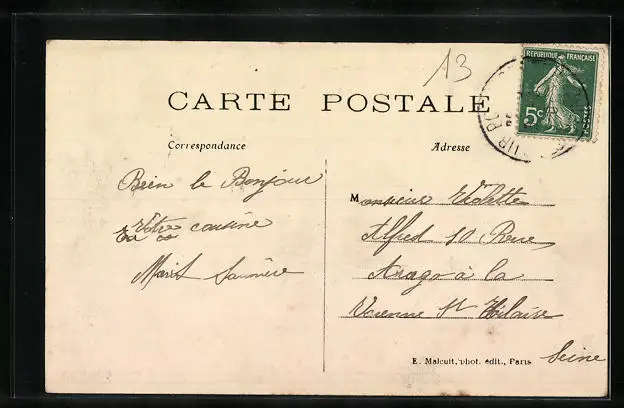 13
RÉPUBLIQUE FRANÇAISE
5c
POSTES
CARTE POSTALE
Correspondance
Adresse
Bien le Bonjour
Votre cousine
Monsieur Violette
Alfred 10 Rue
Arago à la
Varenne St Hilaire
Seine
E. Malcuit, phot. édit., Paris